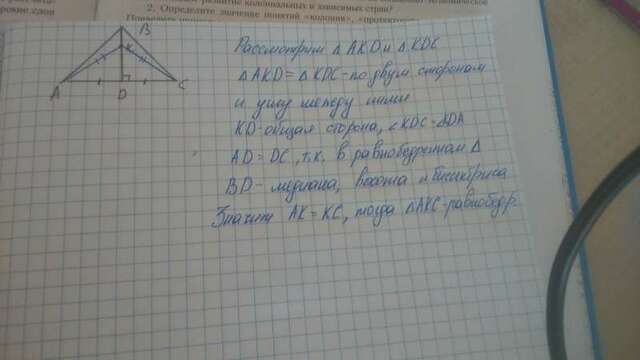 рокие слои
развитие колониальных и зависимых стран?
2. Определите значение понятий «колония», «протекторат»
B
K
A
D
C
Рассмотрим △ AKD и △ KDC
△ AKD = △ KDC - по двум сторонам
и углу между ними
KD - общая сторона, ∠KDC = ∠KDA
AD = DC, т.к. в равнобедренном △
BD - медиана, высота и биссектриса
Значит AK = KC, тогда △AKC - равнобедр.